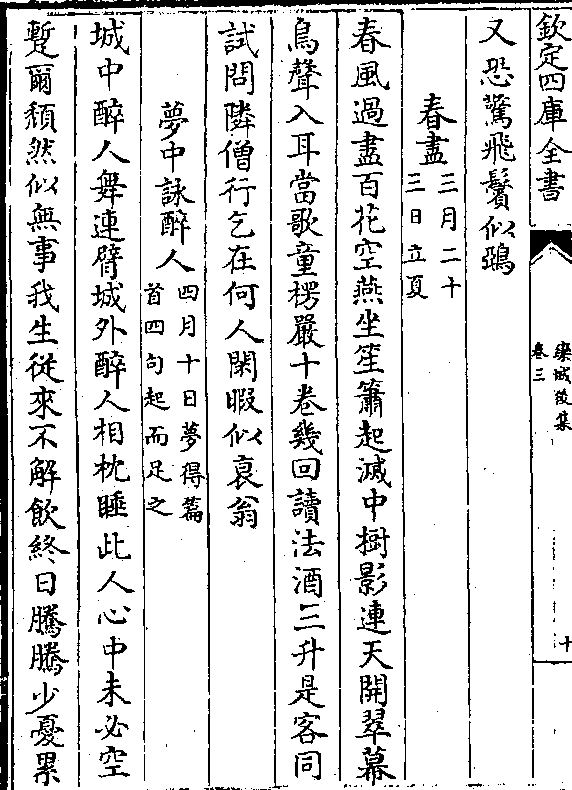 欽定四庫全書
欒城後集
卷三
十
又恐驚飛鬢似鵶
春盡
三月二十
三日立夏
春風過盡百花空燕坐笙簫起滅中樹影連天開翠幕
鳥聲入耳當歌童楞嚴十卷幾回讀法酒三升是客同
試問隣僧行乞在何人閑暇似衰翁
夢中詠醉人
四月十日夢得篇
首四句起而足之
城中醉人舞連臂城外醉人相枕睡此人心中未必空
蹔爾頽然似無事我生從來不解飲終日騰騰少憂累